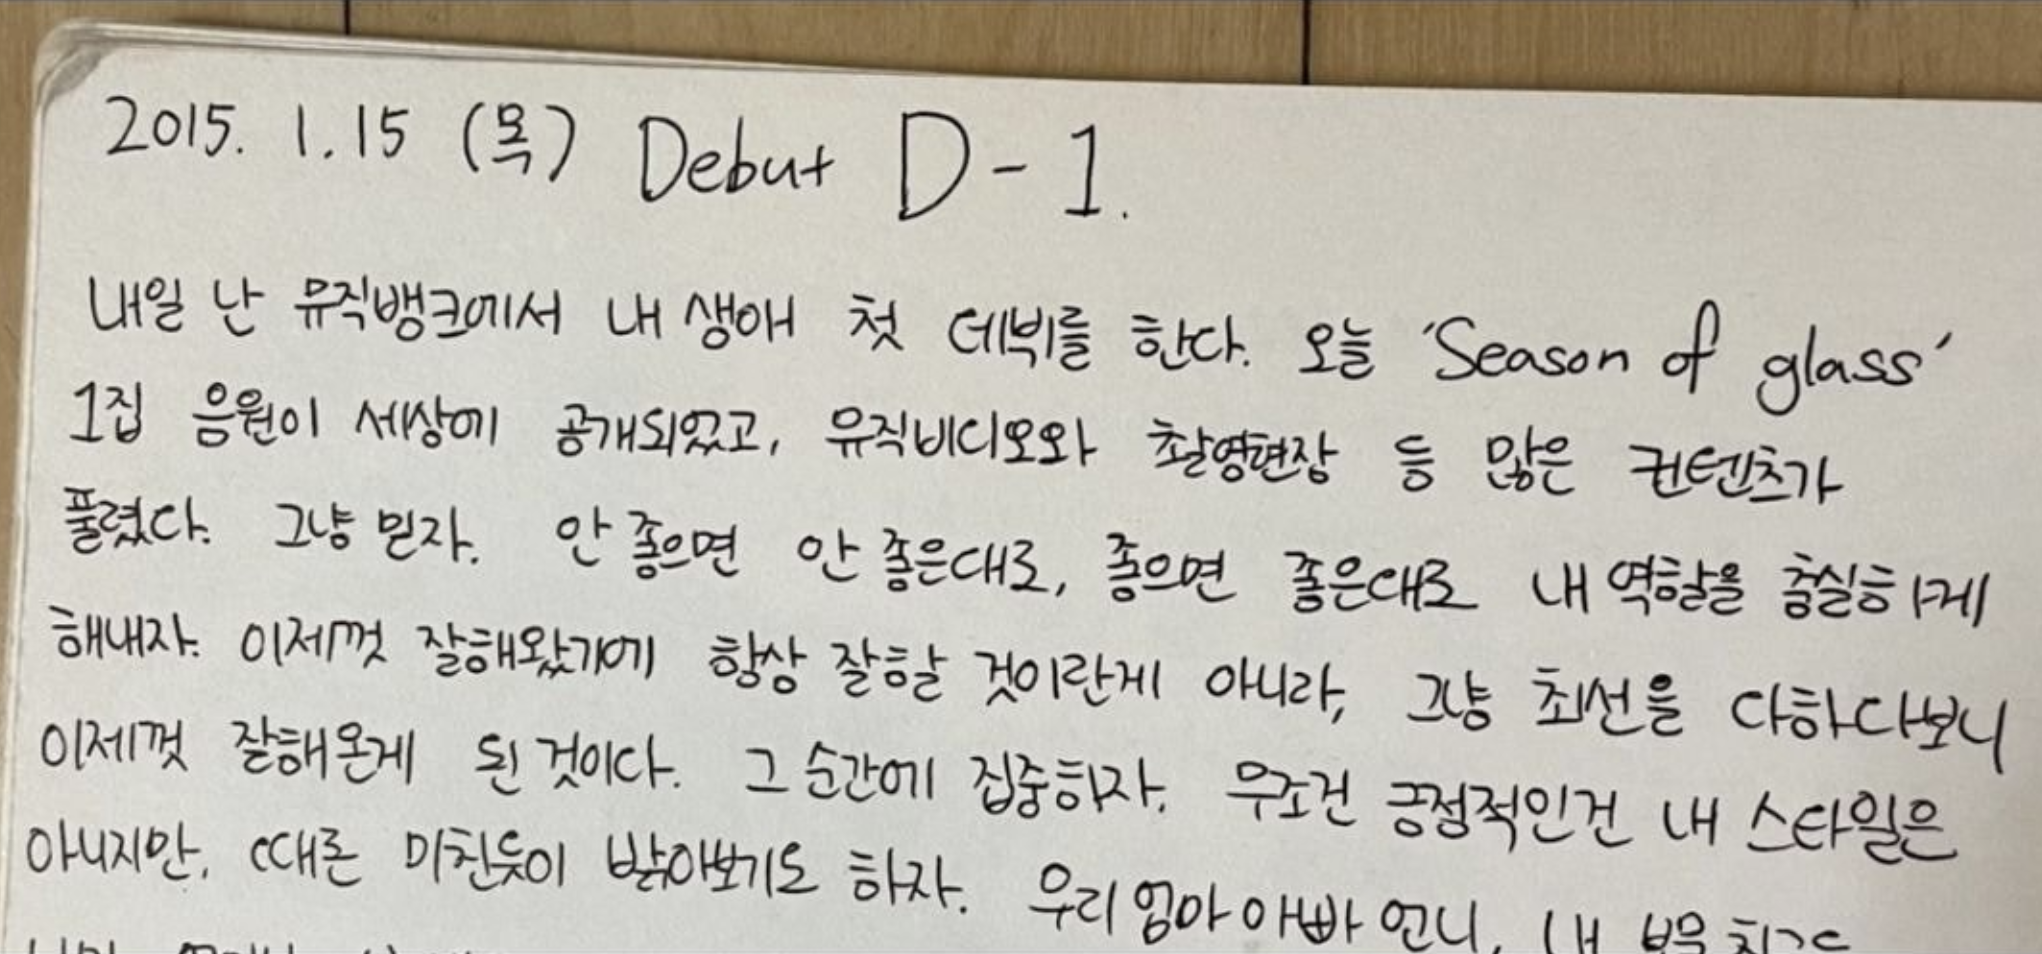 2015. 1.15 (목) Debut D-1.
내일 난 뮤직뱅크에서 내 생애 첫 데뷔를 한다. 오늘 'Season of glass'
1집 음원이 세상에 공개되었고, 뮤직비디오와 촬영현장 등 많은 컨텐츠가
풀렸다. 그냥 믿자. 안 좋으면 안 좋은대로, 좋으면 좋은대로 내 역할을 충실하게
해내자. 이제껏 잘해왔기에 항상 잘할 것이란게 아니라, 그냥 최선을 다하다보니
이제껏 잘해온게 된 것이다. 그 순간에 집중하자. 무조건 긍정적인건 내 스타일은
아니지만, 때론 미친듯이 밝아보기도 하자. 우리 엄마 아빠 언니, 내